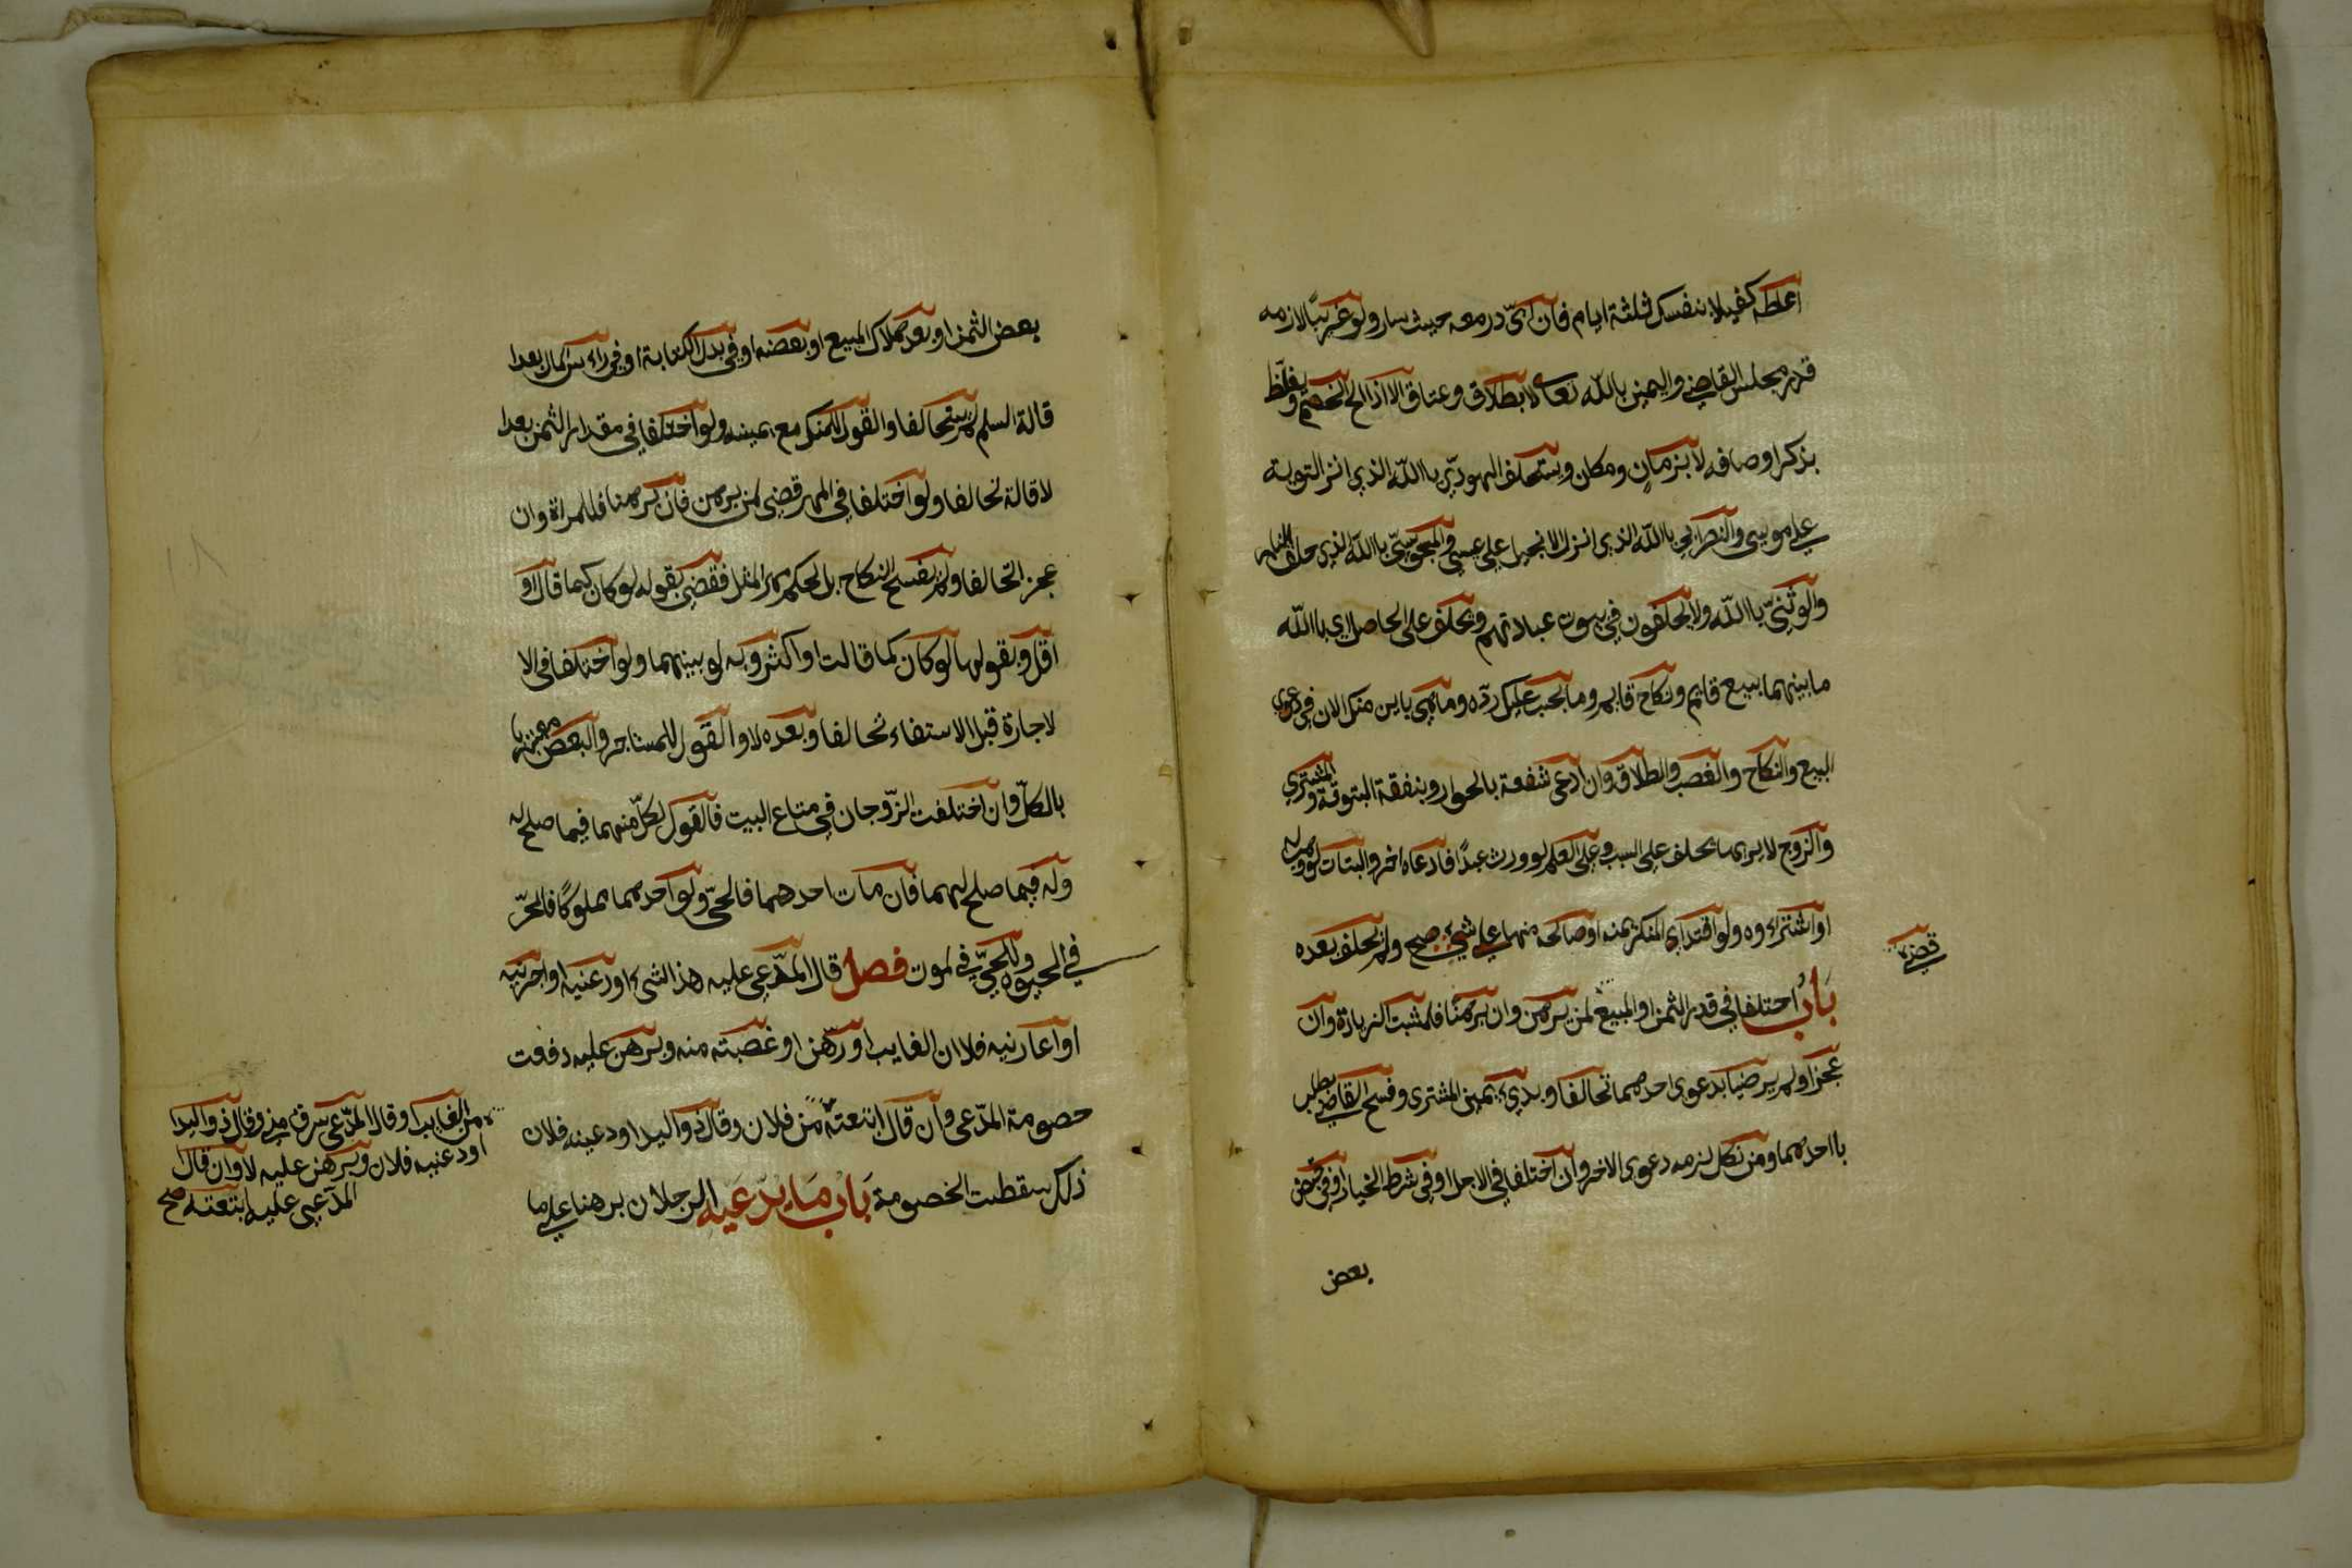 اعطه كفيلا بنفسك ثلثة ايام فان ابي درمعه حيث سار ولو غريبًا لازمه
قدر مجلس القاضي واليمين بالله تعالى لا بطلاق وعتاق الا اذا الح الخصم ويغلّظ
بذكر اوصافه لا بزمان ومكان ويستحلف اليهوديّ باالله الذي انزل التورية
على موسى والنصراني باالله الذي انزل الانجيل على عيسى والمجوسيّ باالله الذي خلق النار
والوثنيّ باالله ولا يحلفون في بيوت عباداتهم ويحلف على الحاصل اي باالله
ما بينهما بيع قايم ونكاح قايم وما يجب عليك ردّه وما هي باين منك الان في دعوي
البيع والنكاح والغصب والطلاق وان ادعى شفعة بالجوار وبنفقة المبتوتة والمشتري
والزوج لا يراهما يحلف على السبب وعلى العلم لو ورث عبدًا فادعاه اخر والبتات لو وهب له
او اشتراءه ولو افتداي المنكر يمنه او صالحه منها على شيء صح ولم يحلف بعده
باب احتلفا في قدر الثمن او المبيع لمن برهن وان برهنا فلمثبت الزيادة وان
عجزا ولم يرضيا بدعوى احدهما تحالفا وبديء بيمين المشترى وفسخ القاضي بطلب
بااحدهما ومن نكل لزمه دعوى الاخر وان اختلفا في الاجل او في شرط الخيار او في قبض
بعض
قضي
بعض الثمن او بعد هلاك المبيع او بعضه او في بدل الكتابة او في راءس المال بعدا
قالة السلم لم يتحالفا والقول للمنكر مع يمينه ولو اختلفا في مقدار الثمن بعدا
لاقالة تحالفا ولو اختلفا في المهر قضى لمن برهن فان برهنا فللمراة وان
عجز اتحالفا ولم يفسخ النكاح بل يحكم مهر المثل فقضى بقوله لو كان كما قال او
اقل وبقولها لو كان كما قالت او اكثر وبه لو بينهما ولو اختلفا في الا
لاجارة قبل الاستفاء تحالفا وبعده لا والقول للمستاجر والبعض معتبر
بالكلّ وان اختلفت الزّوجان في متاع البيت فالقول لكلّ منهما فيما صلح له
وله فيما صلح لهما فان مات احدهما فالحيّ ولو احدهما مملوكًا فالحرّ
في الحيوة وللحيّ في الموت فصل قال المدّعي عليه هذا الشيء اودعنيه او اجرنيه
او اعارنيه فلاان الغايب او رهّن او غصبته منه وبرهن عليه دفعت
حصومة المدّعى وان قال ابتعته من فلان وقال ذو اليد اودعينه فلان
ذلك سقطت الخصومة باب ما يدّعيه الرجلان برهنا على ما
من الغايب او قال المدّعى سرق مني وقال ذو اليد
اودعنيه فلان وبرهن عليه لا وان قال
المدّعى عليه ابتعته صح